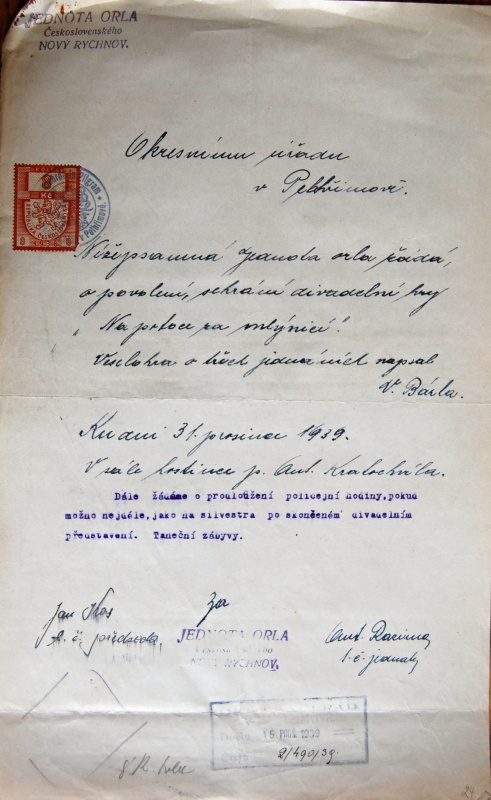 JEDNOTA ORLA
Československého
NOVÝ RYCHNOV.
Okresnímu úřadu
v Pelhřimově.
8
Kč
8 8
Nížepsaná Jednota orla žádá,
o povolení, sehrání divadelní hry
„Na potoce za mlýnicí".
Veselohra o třech jednáních napsal
V. Bárta.
Ku dni 31. prosince 1939.
V sále hostince p. Ant. Kratochvíla.
Dále žádáme o proulóužení policejní hodiny, pokud
možno nejdéle, jako na silvestra po skončeném divadelním
představení. Taneční zábyvy.
Jan
Za
t. č. předseda,
JEDNOTA ORLA
Československého
NOVÝ RYCHNOV.
Ant. Racima
t. č. jednatel
15 PROS. 1939
2/490/39.